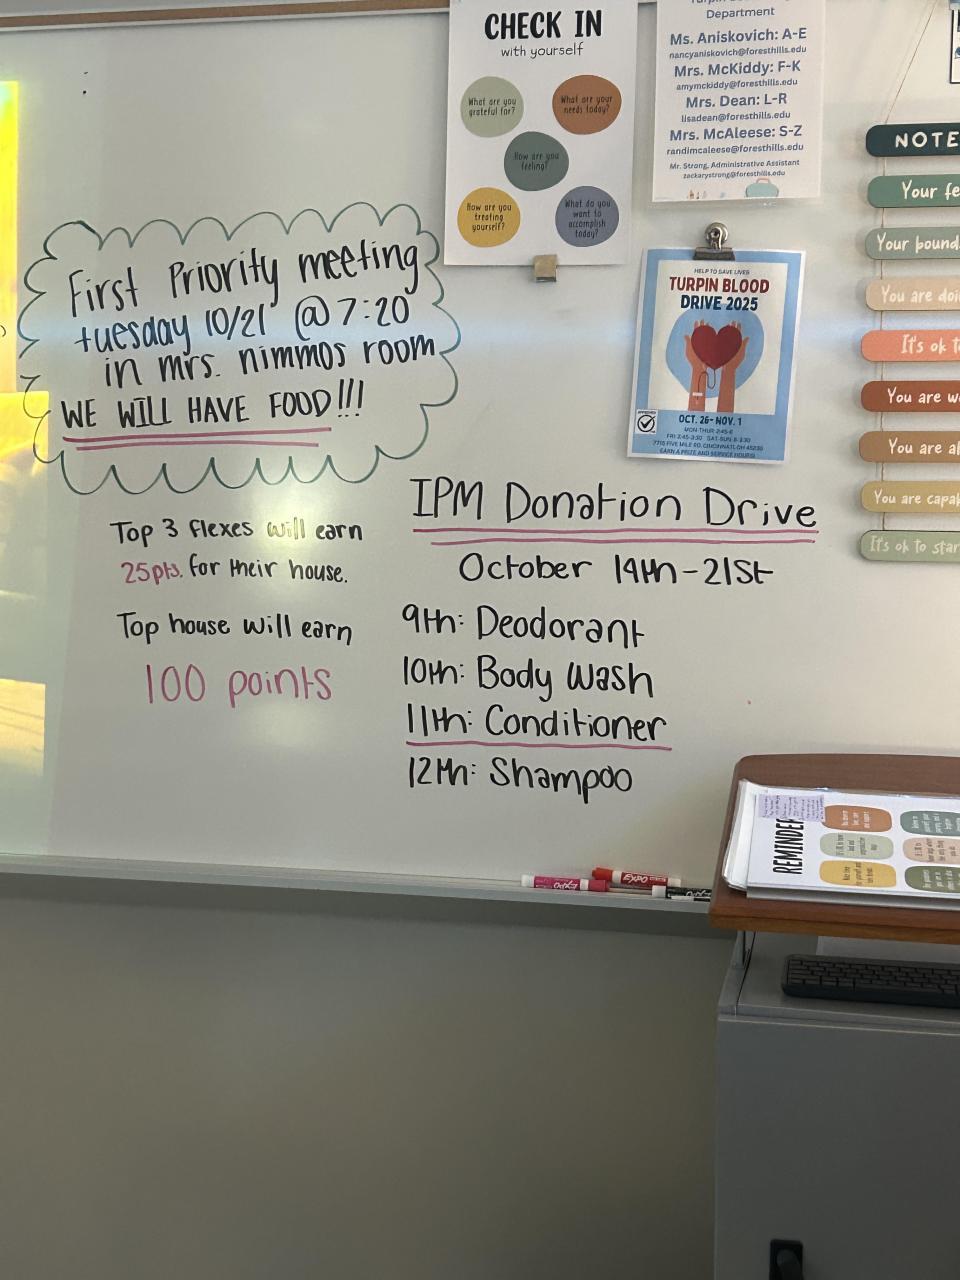 CHECK IN
with yourself
What are you
grateful for?
What are your
needs today?
How are you
feeling?
How are you
treating
yourself?
What do you
want to
accomplish
today?
Department
Ms. Aniskovich: A-E
nancyaniskovich@foresthills.edu
Mrs. McKiddy: F-K
amymckiddy@foresthills.edu
Mrs. Dean: L-R
lisadean@foresthills.edu
Mrs. McAleese: S-Z
randimcaleese@foresthills.edu
Mr. Strong, Administrative Assistant
zackarystrong@foresthills.edu
NOTE
Your fe
Your bound
You are doi
It's ok t
You are w
You are a
You are capa
It's ok to star
HELP TO SAVE LIVES
TURPIN BLOOD
DRIVE 2025
APPROVED
OCT. 26- NOV. 1
MON-THUR 2:45-6
FRI 2:45-3:30 SAT-SUN: 8-3:30
7715 FIVE MILE RD, CINCINNATI, OH 45230
EARN A PRIZE AND SERVICE HOURS!
First Priority meeting
tuesday 10/21 @ 7:20
in mrs. nimmos room
WE WILL HAVE FOOD!!!
Top 3 flexes will earn
25pts. for their house.
Top house will earn
100 points
IPM Donation Drive
October 14th-21st
9th: Deodorant
10th: Body Wash
11th: Conditioner
12th: Shampoo
EXPO
EXPO
REMINDER